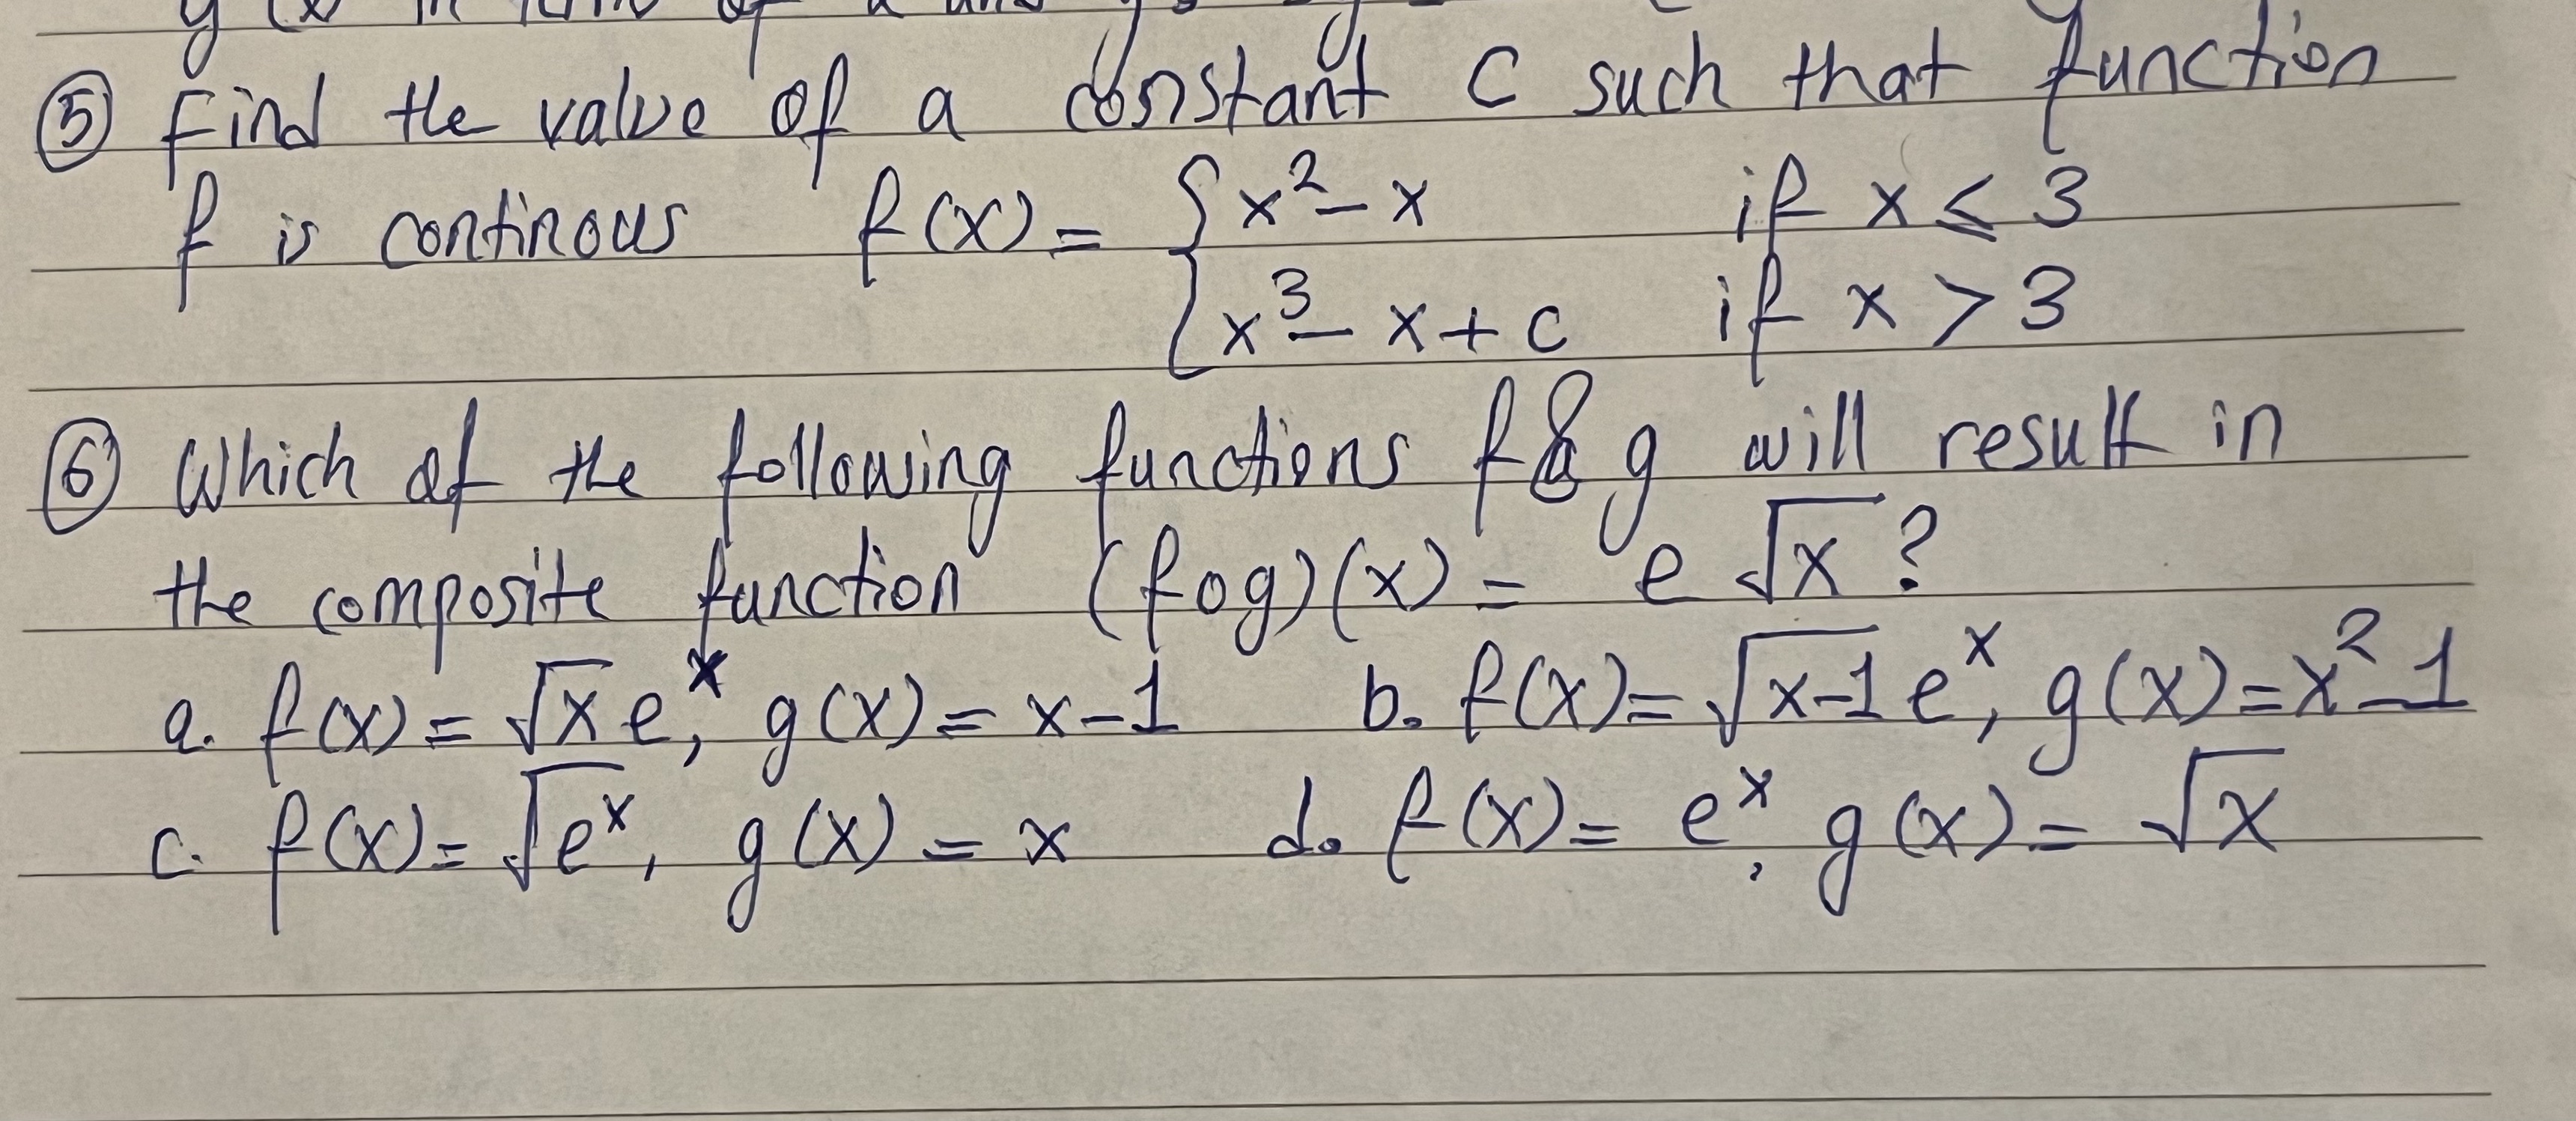 ⑤ Find the value of a constant C such that function
f is continous f(x) = { x² - x if x ≤ 3
x³ - x + c if x > 3
⑥ Which of the following functions f & g will result in
the composite function (fog)(x) = e √x ?
a. f(x) = √x eˣ, g(x) = x - 1 b. f(x) = √(x-1) eˣ, g(x) = x² - 1
c. f(x) = √(eˣ), g(x) = x d. f(x) = eˣ, g(x) = √x